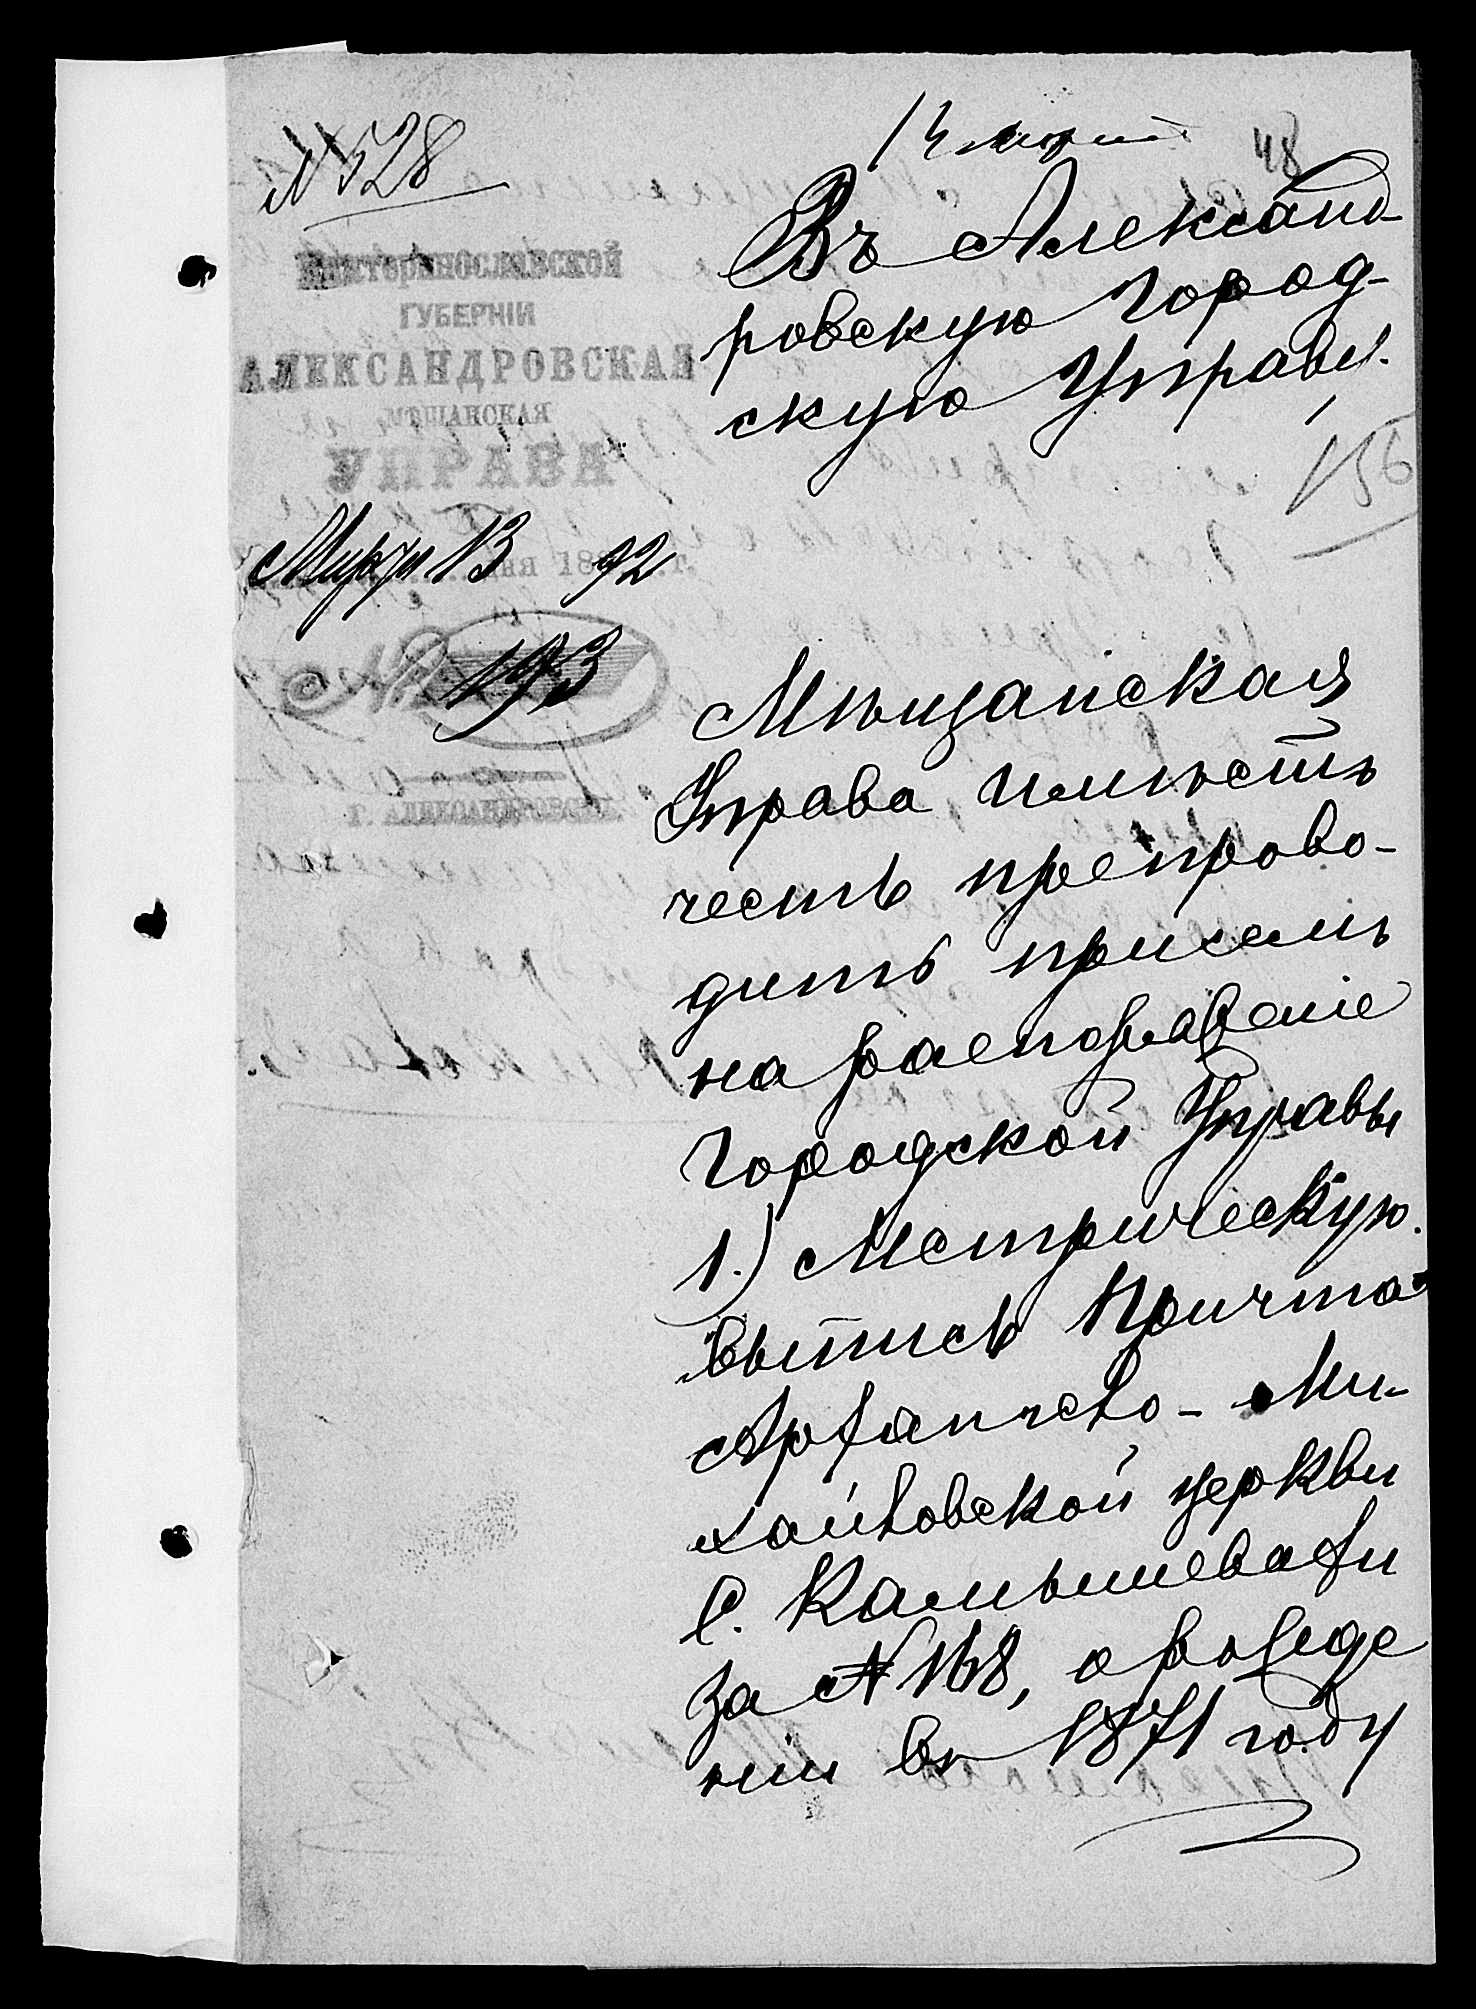 № 528
14 марта
48
Екатеринославской
ГУБЕРНІИ
АЛЕКСАНДРОВСКАЯ
МѢЩАНСКАЯ
УПРАВА
Марта 13 дня 1892 г.
№ 193
Г. АЛЕКСАНДРОВСКЪ.
Въ Александ-
ровскую Город-
скую Управу.
156
Мѣщанская
Управа имѣетъ
честь препрово-
дить присемъ
на распоряженіе
Городской Управы
1.) Метрическую
выпись Причта
Архангело-Ми-
хайловской церкви
С. Камышевахи
за № 168, о рожде
ніи въ 1871 году